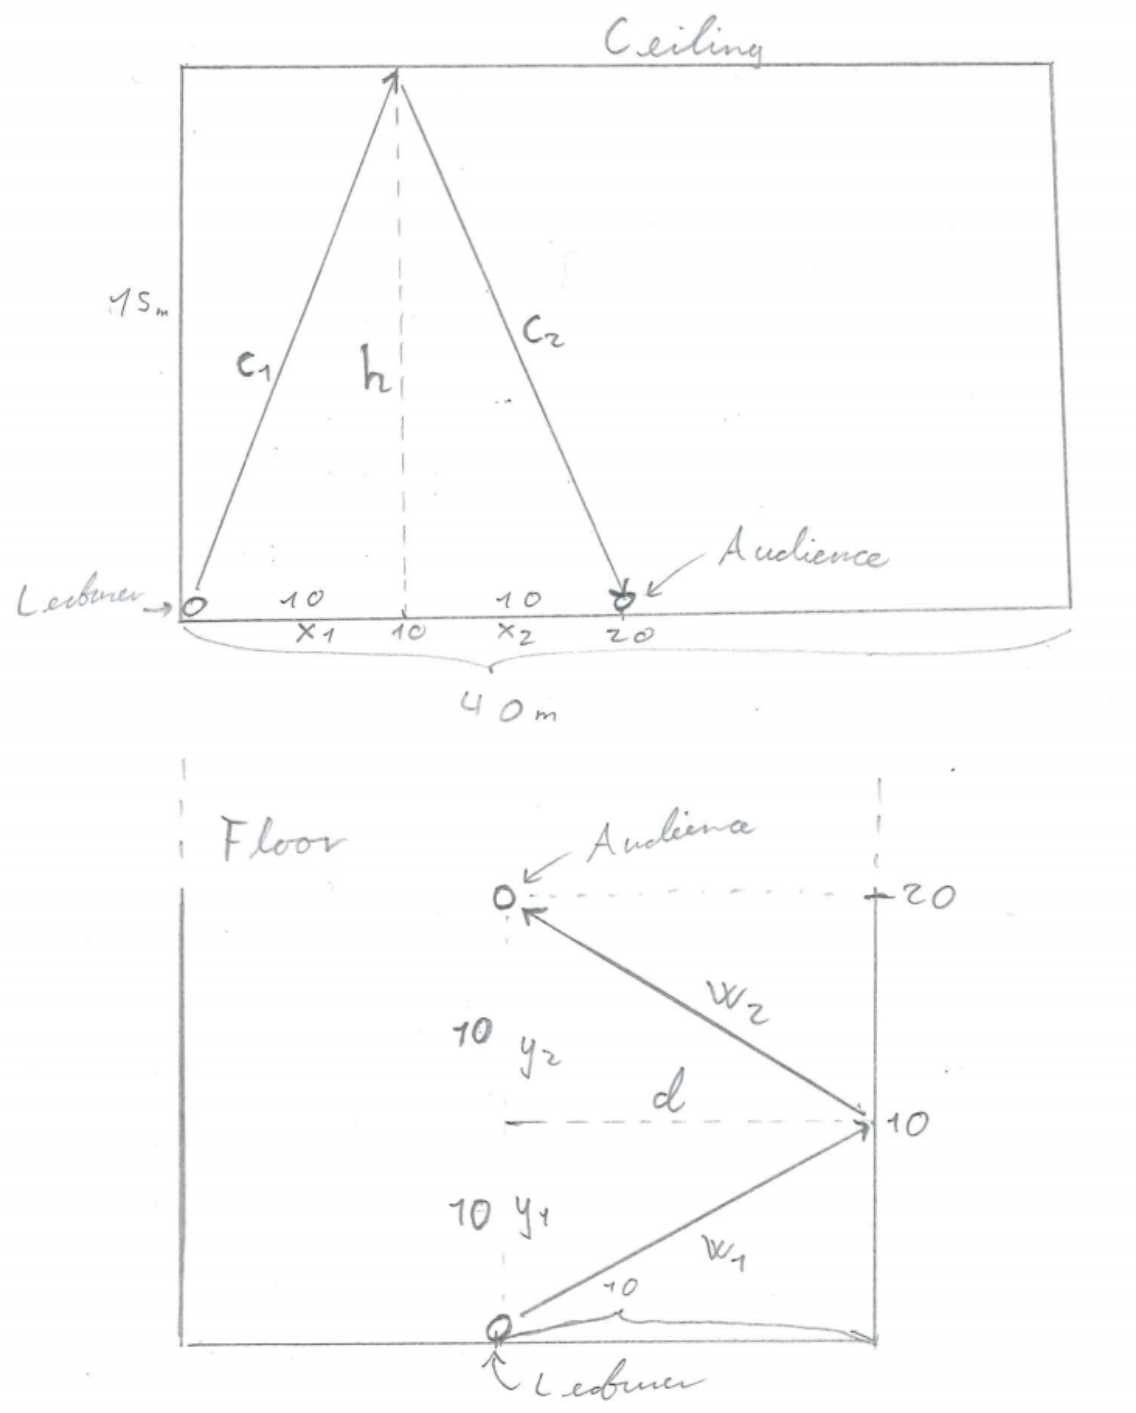 Ceiling
15m
c1
h
c2
Audience
Lecturer
10
10
x1
10
x2
20
40m
Floor
Audience
20
w2
10 y2
d
10
10 y1
w1
10
Lecturer